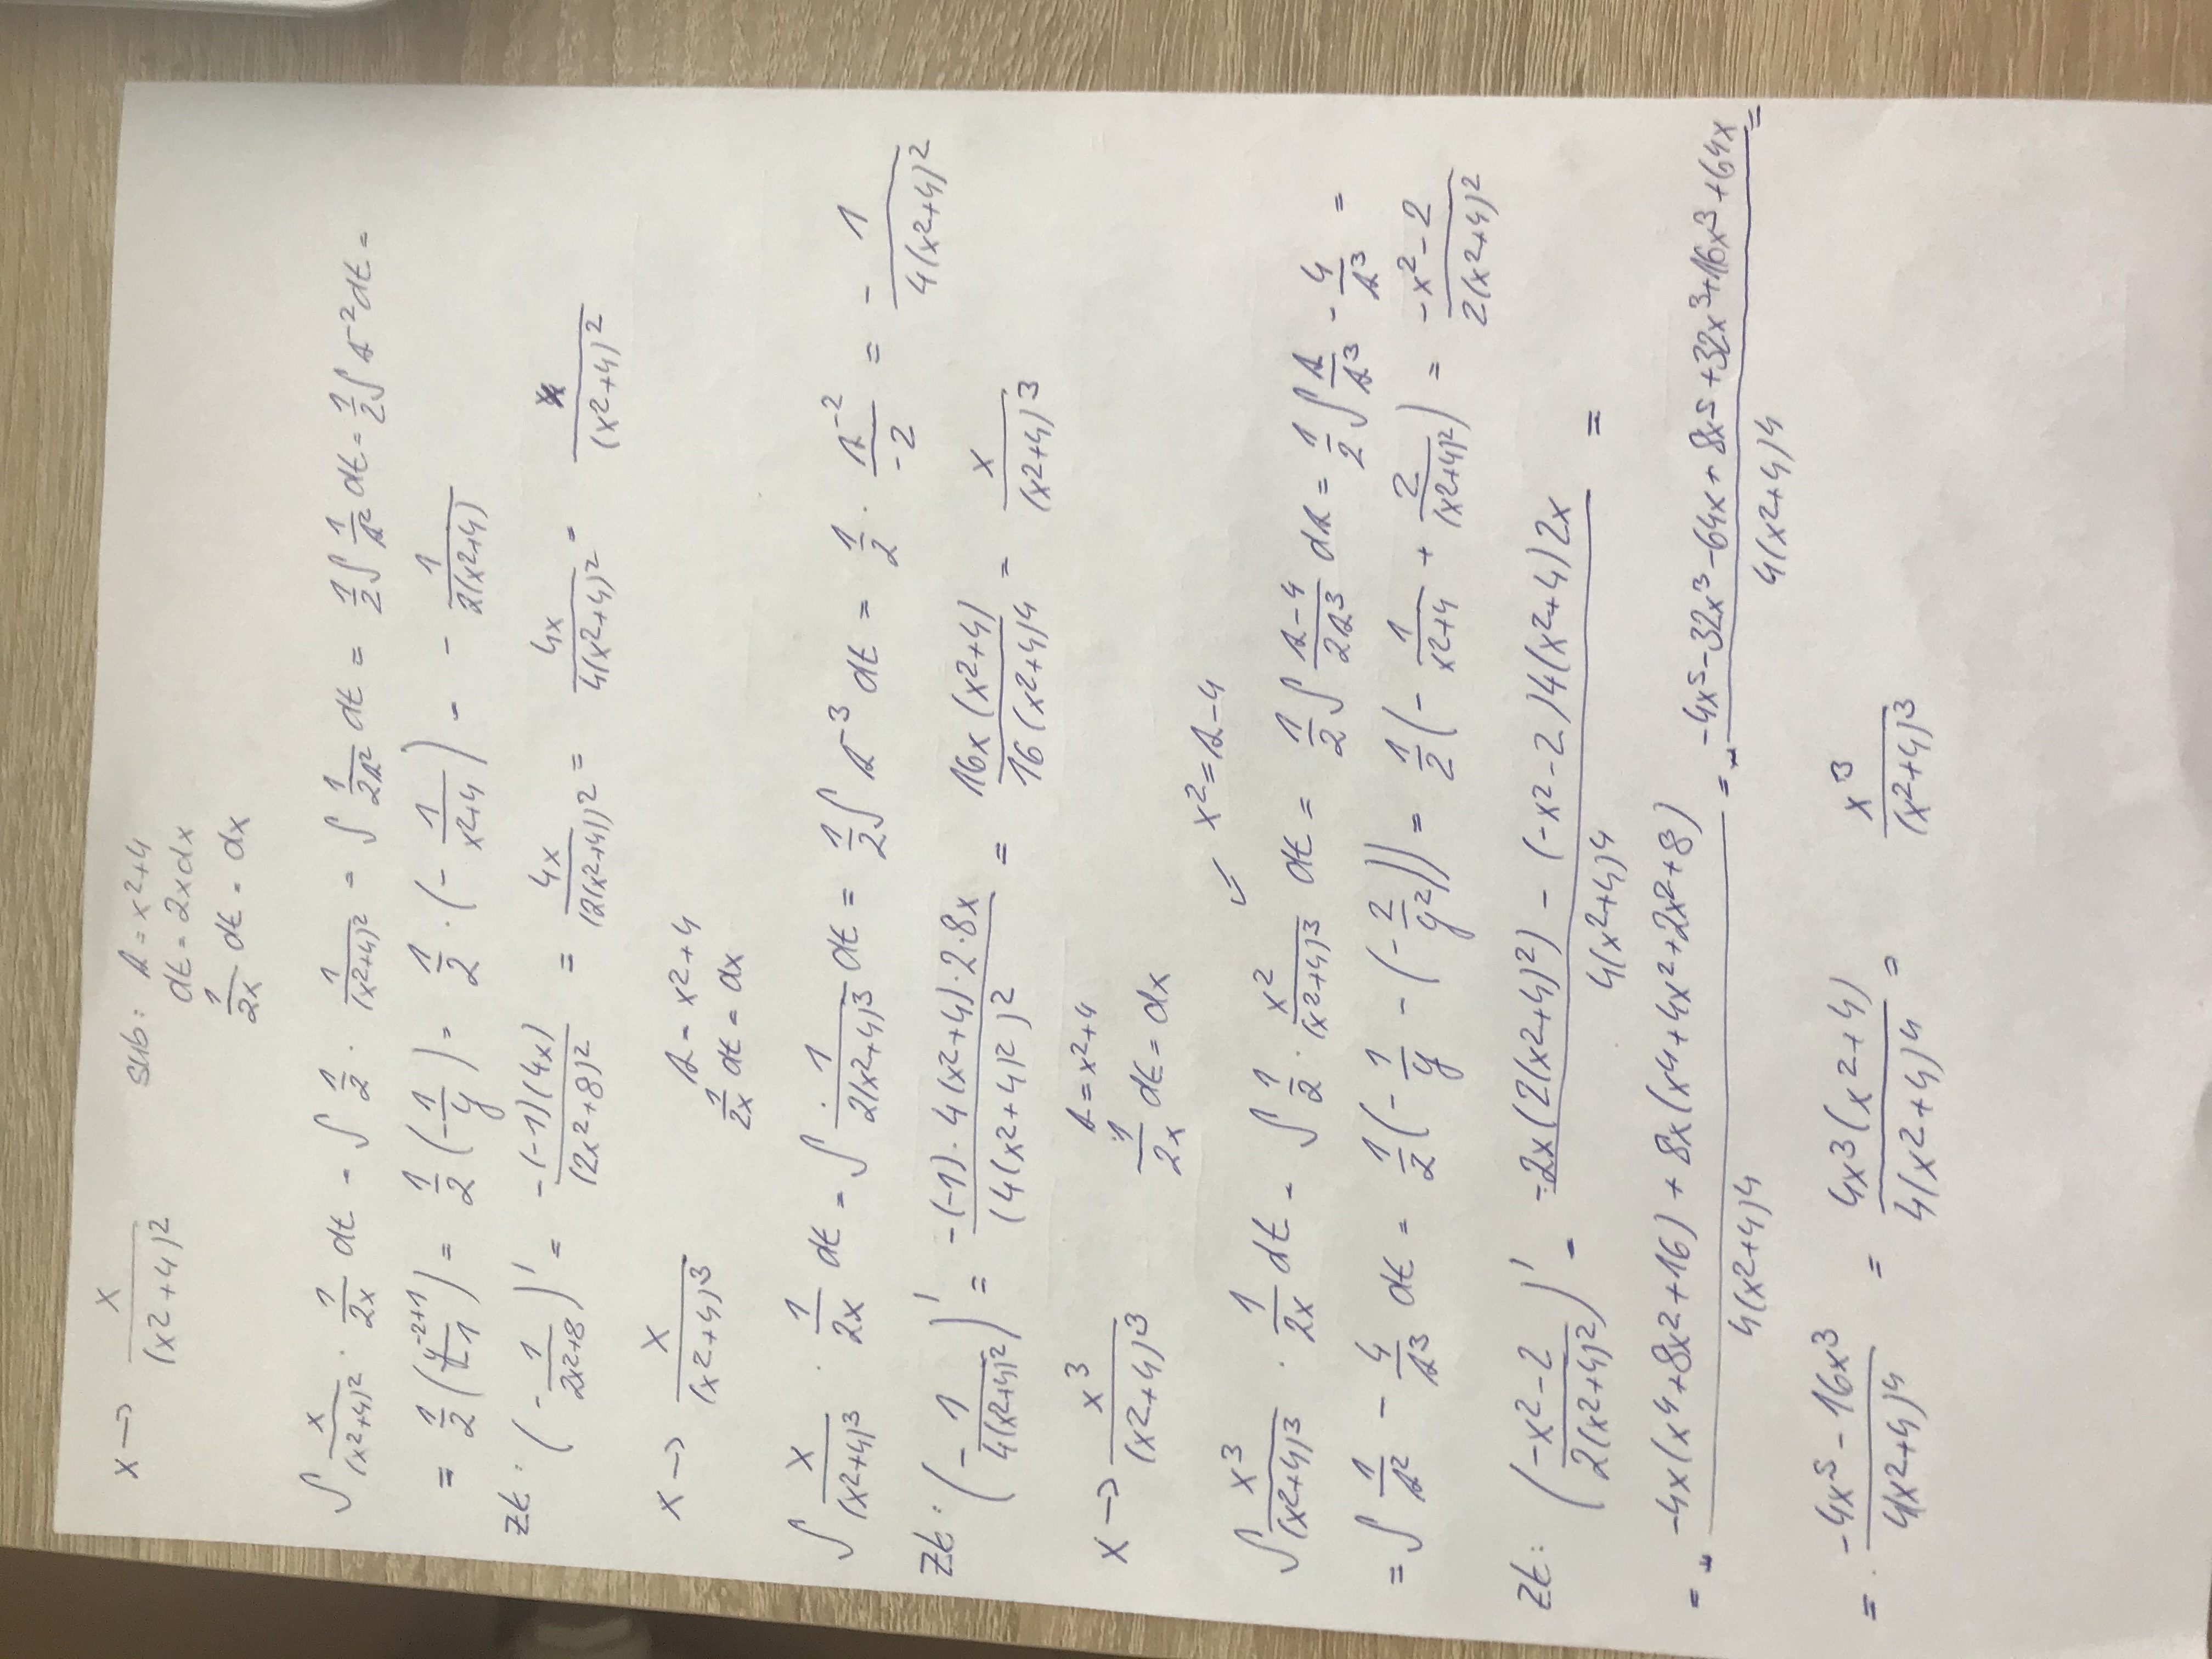 x → x/(x²+4)² sub: t = x²+4
dt = 2x dx
1/2x dt = dx
∫ x/(x²+4)² · 1/2x dt = ∫ 1/2 · 1/(x²+4)² = ∫ 1/2t² dt = 1/2 ∫ 1/t² dt = 1/2 ∫ t⁻² dt =
= 1/2 (y⁻²⁺¹/-1) = 1/2 (-1/y) = 1/2 · (-1/x²+4) = - 1/2(x²+4)
zk: (- 1/2x²+8)' = -(-1)(4x)/(2x²+8)² = 4x/(2(x²+4))² = 4x/4(x²+4)² = x/(x²+4)²
x → x/(x²+4)³ t = x²+4
1/2x dt = dx
∫ x/(x²+4)³ · 1/2x dt = ∫ 1/2(x²+4)³ dt = 1/2 ∫ t⁻³ dt = 1/2 · t⁻²/-2 = - 1/4(x²+4)²
zk: (- 1/4(x²+4)²)' = -(-1)·4(x²+4)·2·8x/(4(x²+4)²)² = 16x(x²+4)/16(x²+4)⁴ = x/(x²+4)³
x → x³/(x²+4)³ t = x²+4
1/2x dt = dx x² = t-4
∫ x³/(x²+4)³ · 1/2x dt = ∫ 1/2 · x²/(x²+4)³ dt = 1/2 ∫ t-4/2t³ dt = 1/2 ∫ t/t³ - 4/t³ =
= ∫ 1/t² - 4/t³ dt = 1/2 (-1/y - (-2/y²)) = 1/2 (- 1/x²+4 + 2/(x²+4)²) = -x²-2/2(x²+4)²
zk: (-x²-2/2(x²+4)²)' = -2x(2(x²+4)²) - (-x²-2)4(x²+4)2x/4(x²+4)⁴ =
= -4x(x⁴+8x²+16) + 8x(x⁴+4x²+2x²+8)/4(x²+4)⁴ = -4x⁵-32x³-64x+8x⁵+32x³+16x³+64x/4(x²+4)⁴ =
= -4x⁵-16x³/4(x²+4)⁴ = 4x³(x²+4)/4(x²+4)⁴ = x³/(x²+4)³